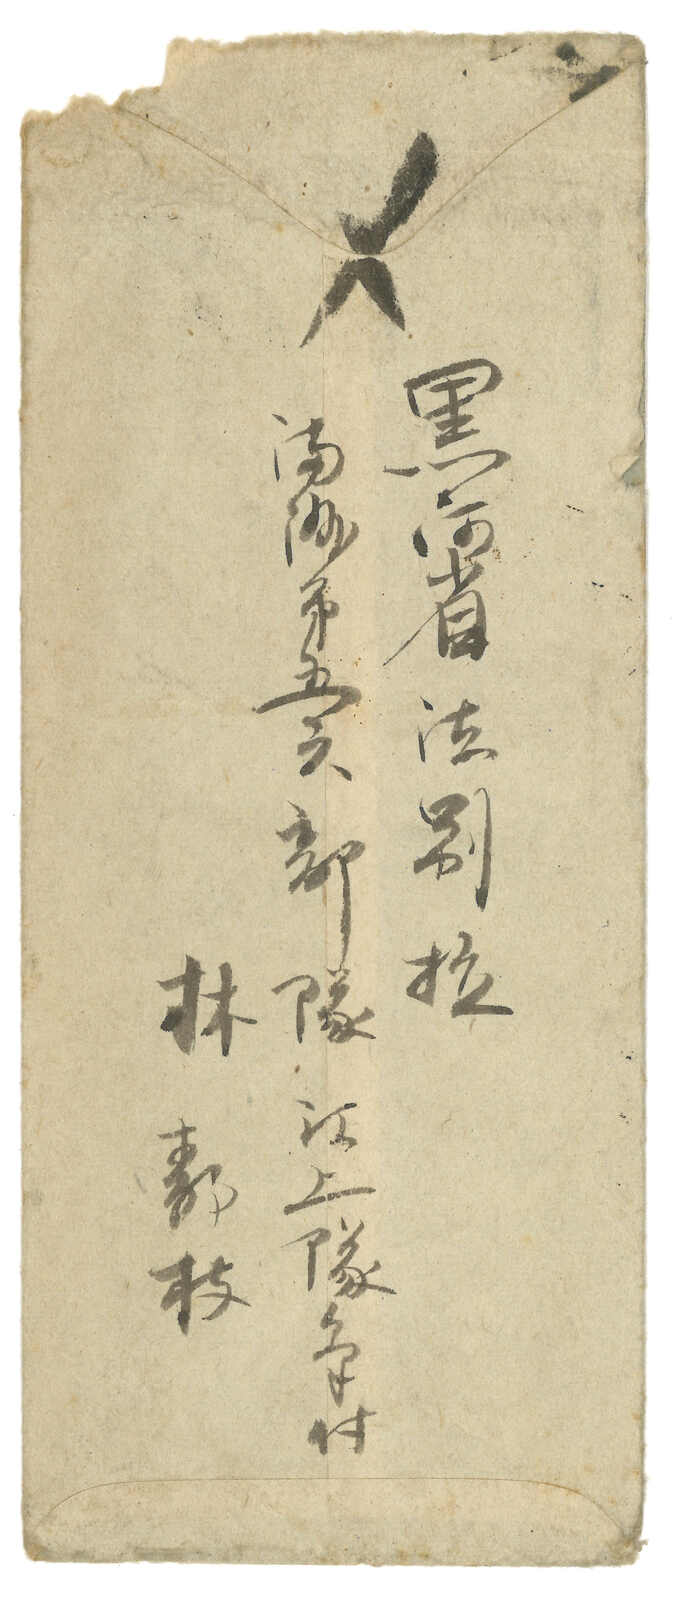 〆
黒河省法別拉
満洲第五六部隊江上隊気付
林 枝